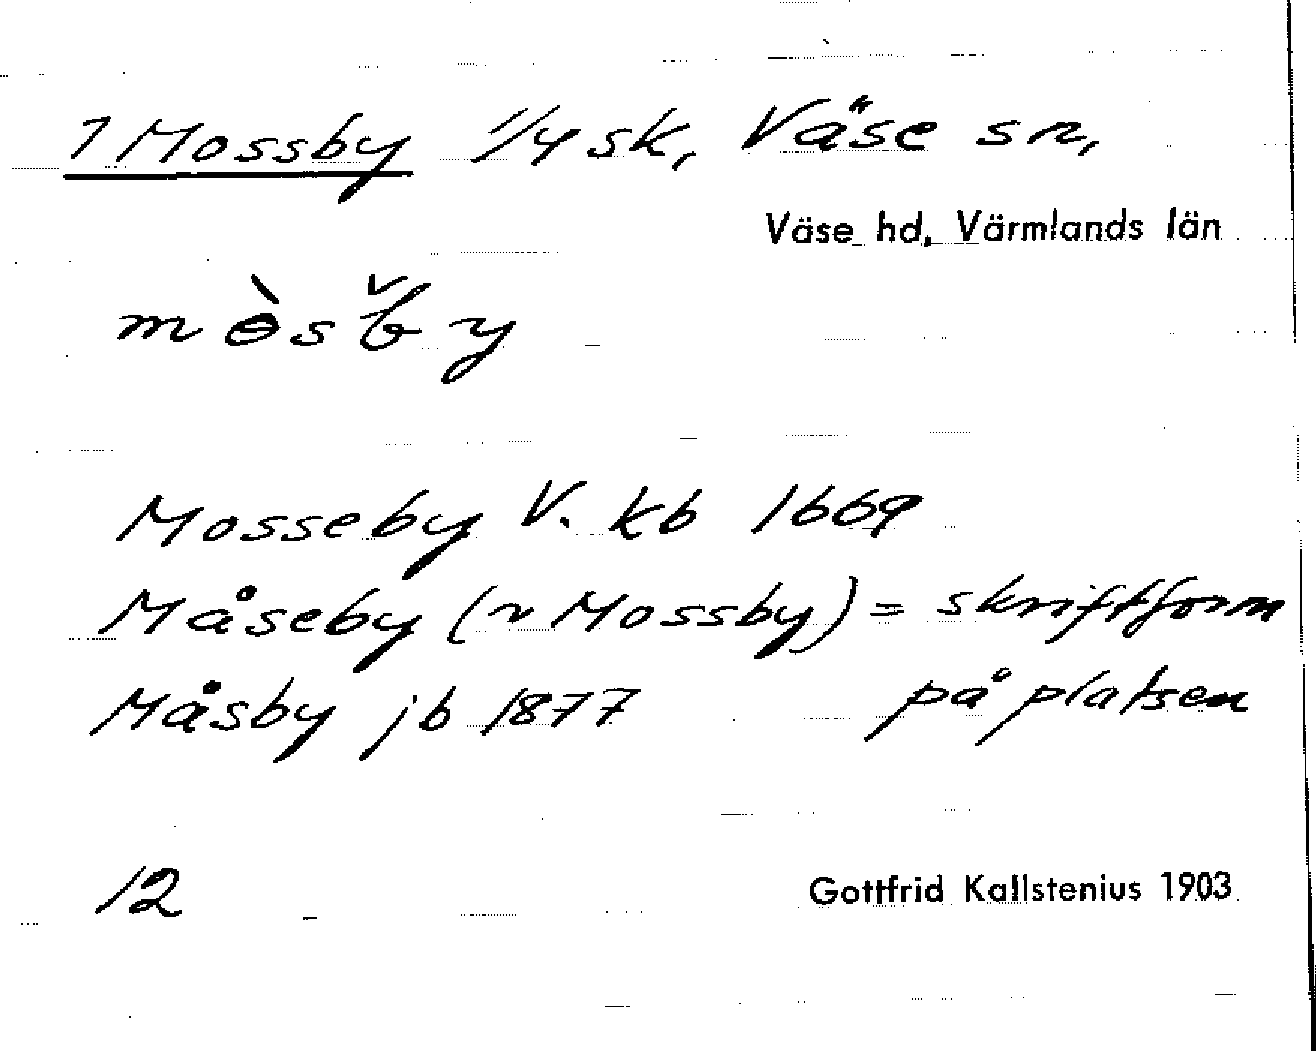 1 Mossby 1/4 sk, Väse sn,
Väse hd, Värmlands län
mɵ̀sb̌y
Mosseby V. kb 1669
Måseby (v Mossby) = skriftform
på platsen
Måsby jb 1877
12
Gottfrid Kallstenius 1903